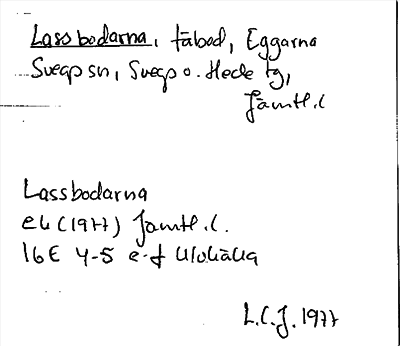 Lassbodarna, fäbod, Eggarna
Svegs sn, Svegs o. Hede tg,
Jämtl. l
Lassbodarna
ek (1977) Jämtl. l.
16E 4-5 e-f
L.C.J. 1977